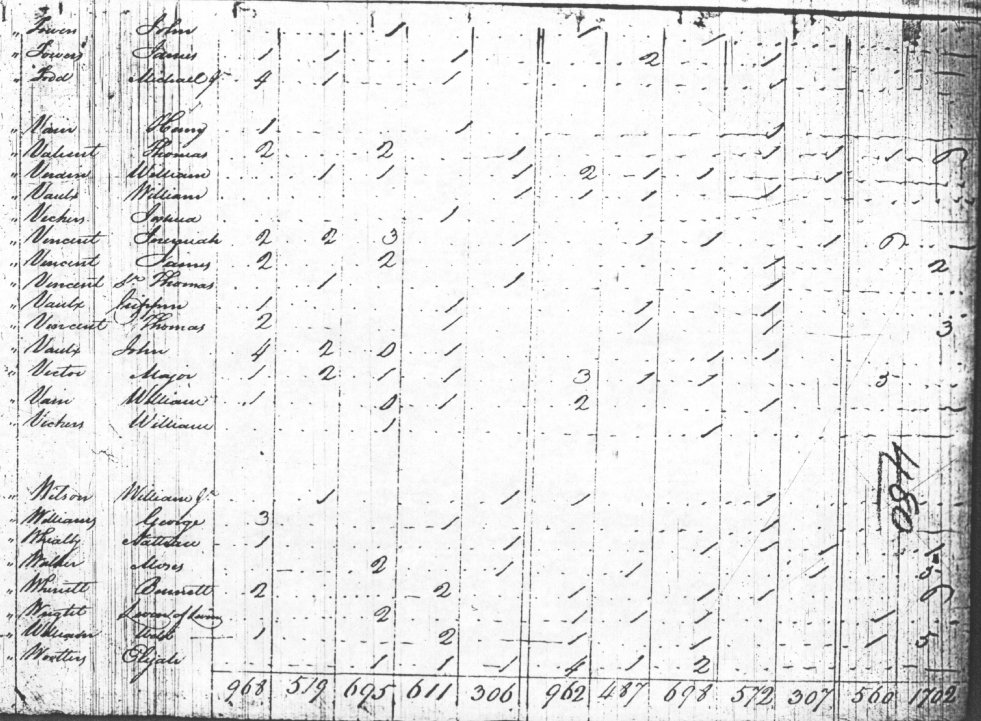 " Towers John 1 1 1
" Towers James 1 1 1 2 1
" Todd Michael Jr 4 1 1 1
" Henry 1 1 1
" Valient Thomas 2 2 1 1 1 1
" William 1 1 1 2 1 1 1
" Vaulx William 1 1 1 1
" Vickers Joshua 1
" Vincent Jeremiah 2 2 3 1 1 1 1 1
" Vincent James 2 2 1 2
" Vincent Sr Thomas 1 1 1
" Vaulx 1 1 1 1
" Vincent Thomas 2 1 1 1 3
" Vaulx John 4 2 0 1 1 1
" Victor Major 1 2 1 1 3 1 1 5
" William 1 0 1 2 1
" Vickers William 1 1
480
" Wilson William Jr 1 1 1 1
" Williams George 3 1 1
" 1 1 1 1 1 1
" Walker Moses 2 1 1 1 5
" 2 2 1 1 1
" Wright Levin of Levin 2 1 1 1 1
" 1 2 1 1 1 5
" Elijah 1 1 1 4 1 2
968 519 695 611 306 962 487 698 572 307 560 1702